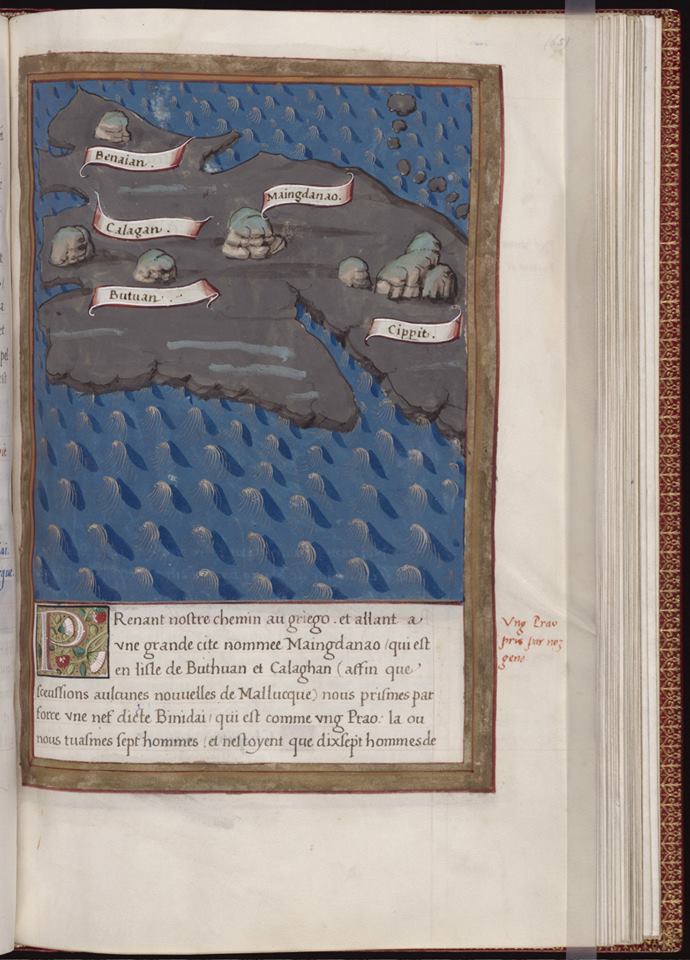 Benaian.
Maingdanao.
Calagan.
Butuan.
Cippit.
PRenant nostre chemin au griego. et allant a
vne grande cite nommee Maingdanao / qui est
en lisle de Buthuan et Calaghan (affin que
sceussions aulcunes nouuelles de Mallucque) nous prismes par
force vne nef dicte Binidai / qui est comme vng Prao. la ou
nous tuasmes sept hommes. et nestoyent que dixsept hommes de
Vng Prao
pris sur noz
gens